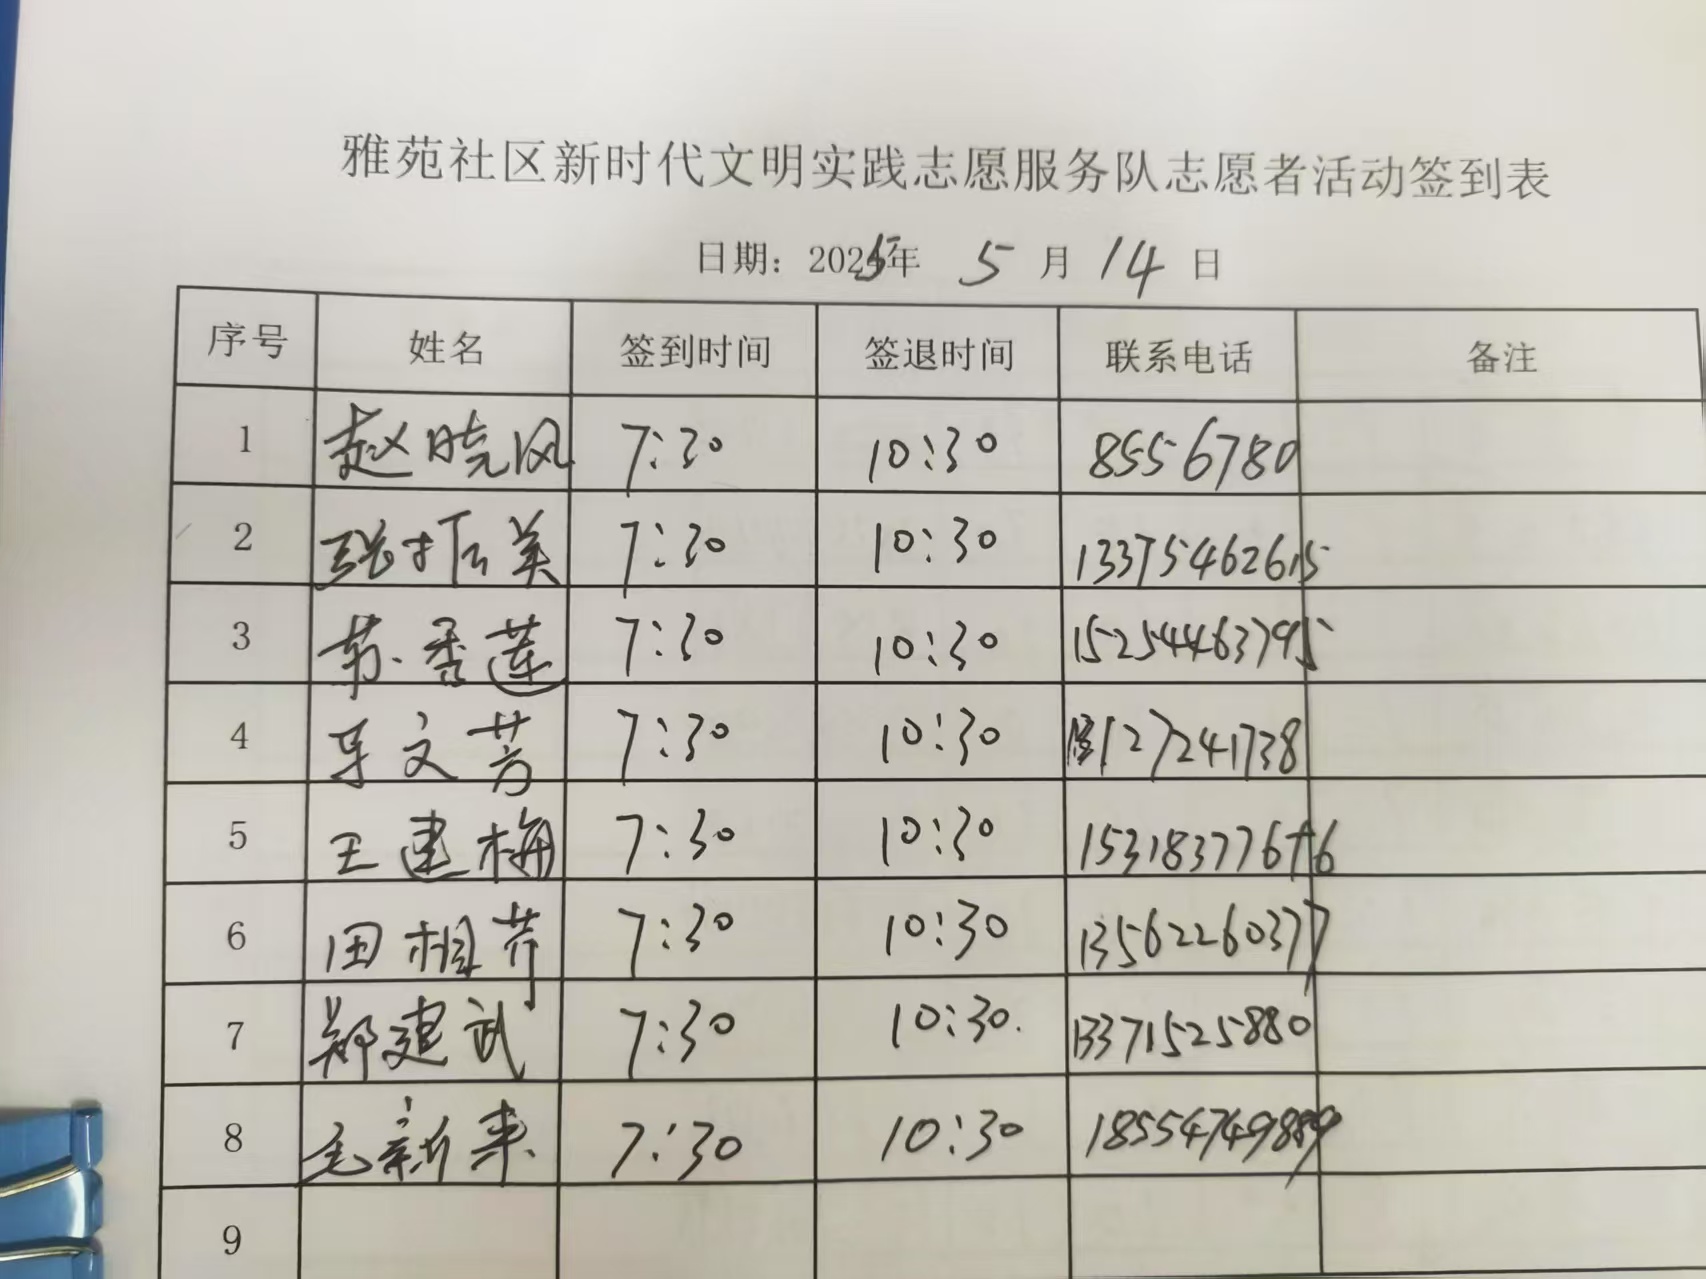 雅苑社区新时代文明实践志愿服务队志愿者活动签到表
日期：2025年 5 月 14 日
序号 姓名 签到时间 签退时间 联系电话 备注
1 赵晓风 7:30 10:30 8556780
2 张振美 7:30 10:30 13375462615
3 苏秀莲 7:30 10:30 15254463795
4 文芳 7:30 10:30 127241738
5 王建梅 7:30 10:30 15318377676
6 田相芹 7:30 10:30 13562260377
7 郑建武 7:30 10:30. 13371525880
8 毛新来 7:30 10:30 18554749889
9